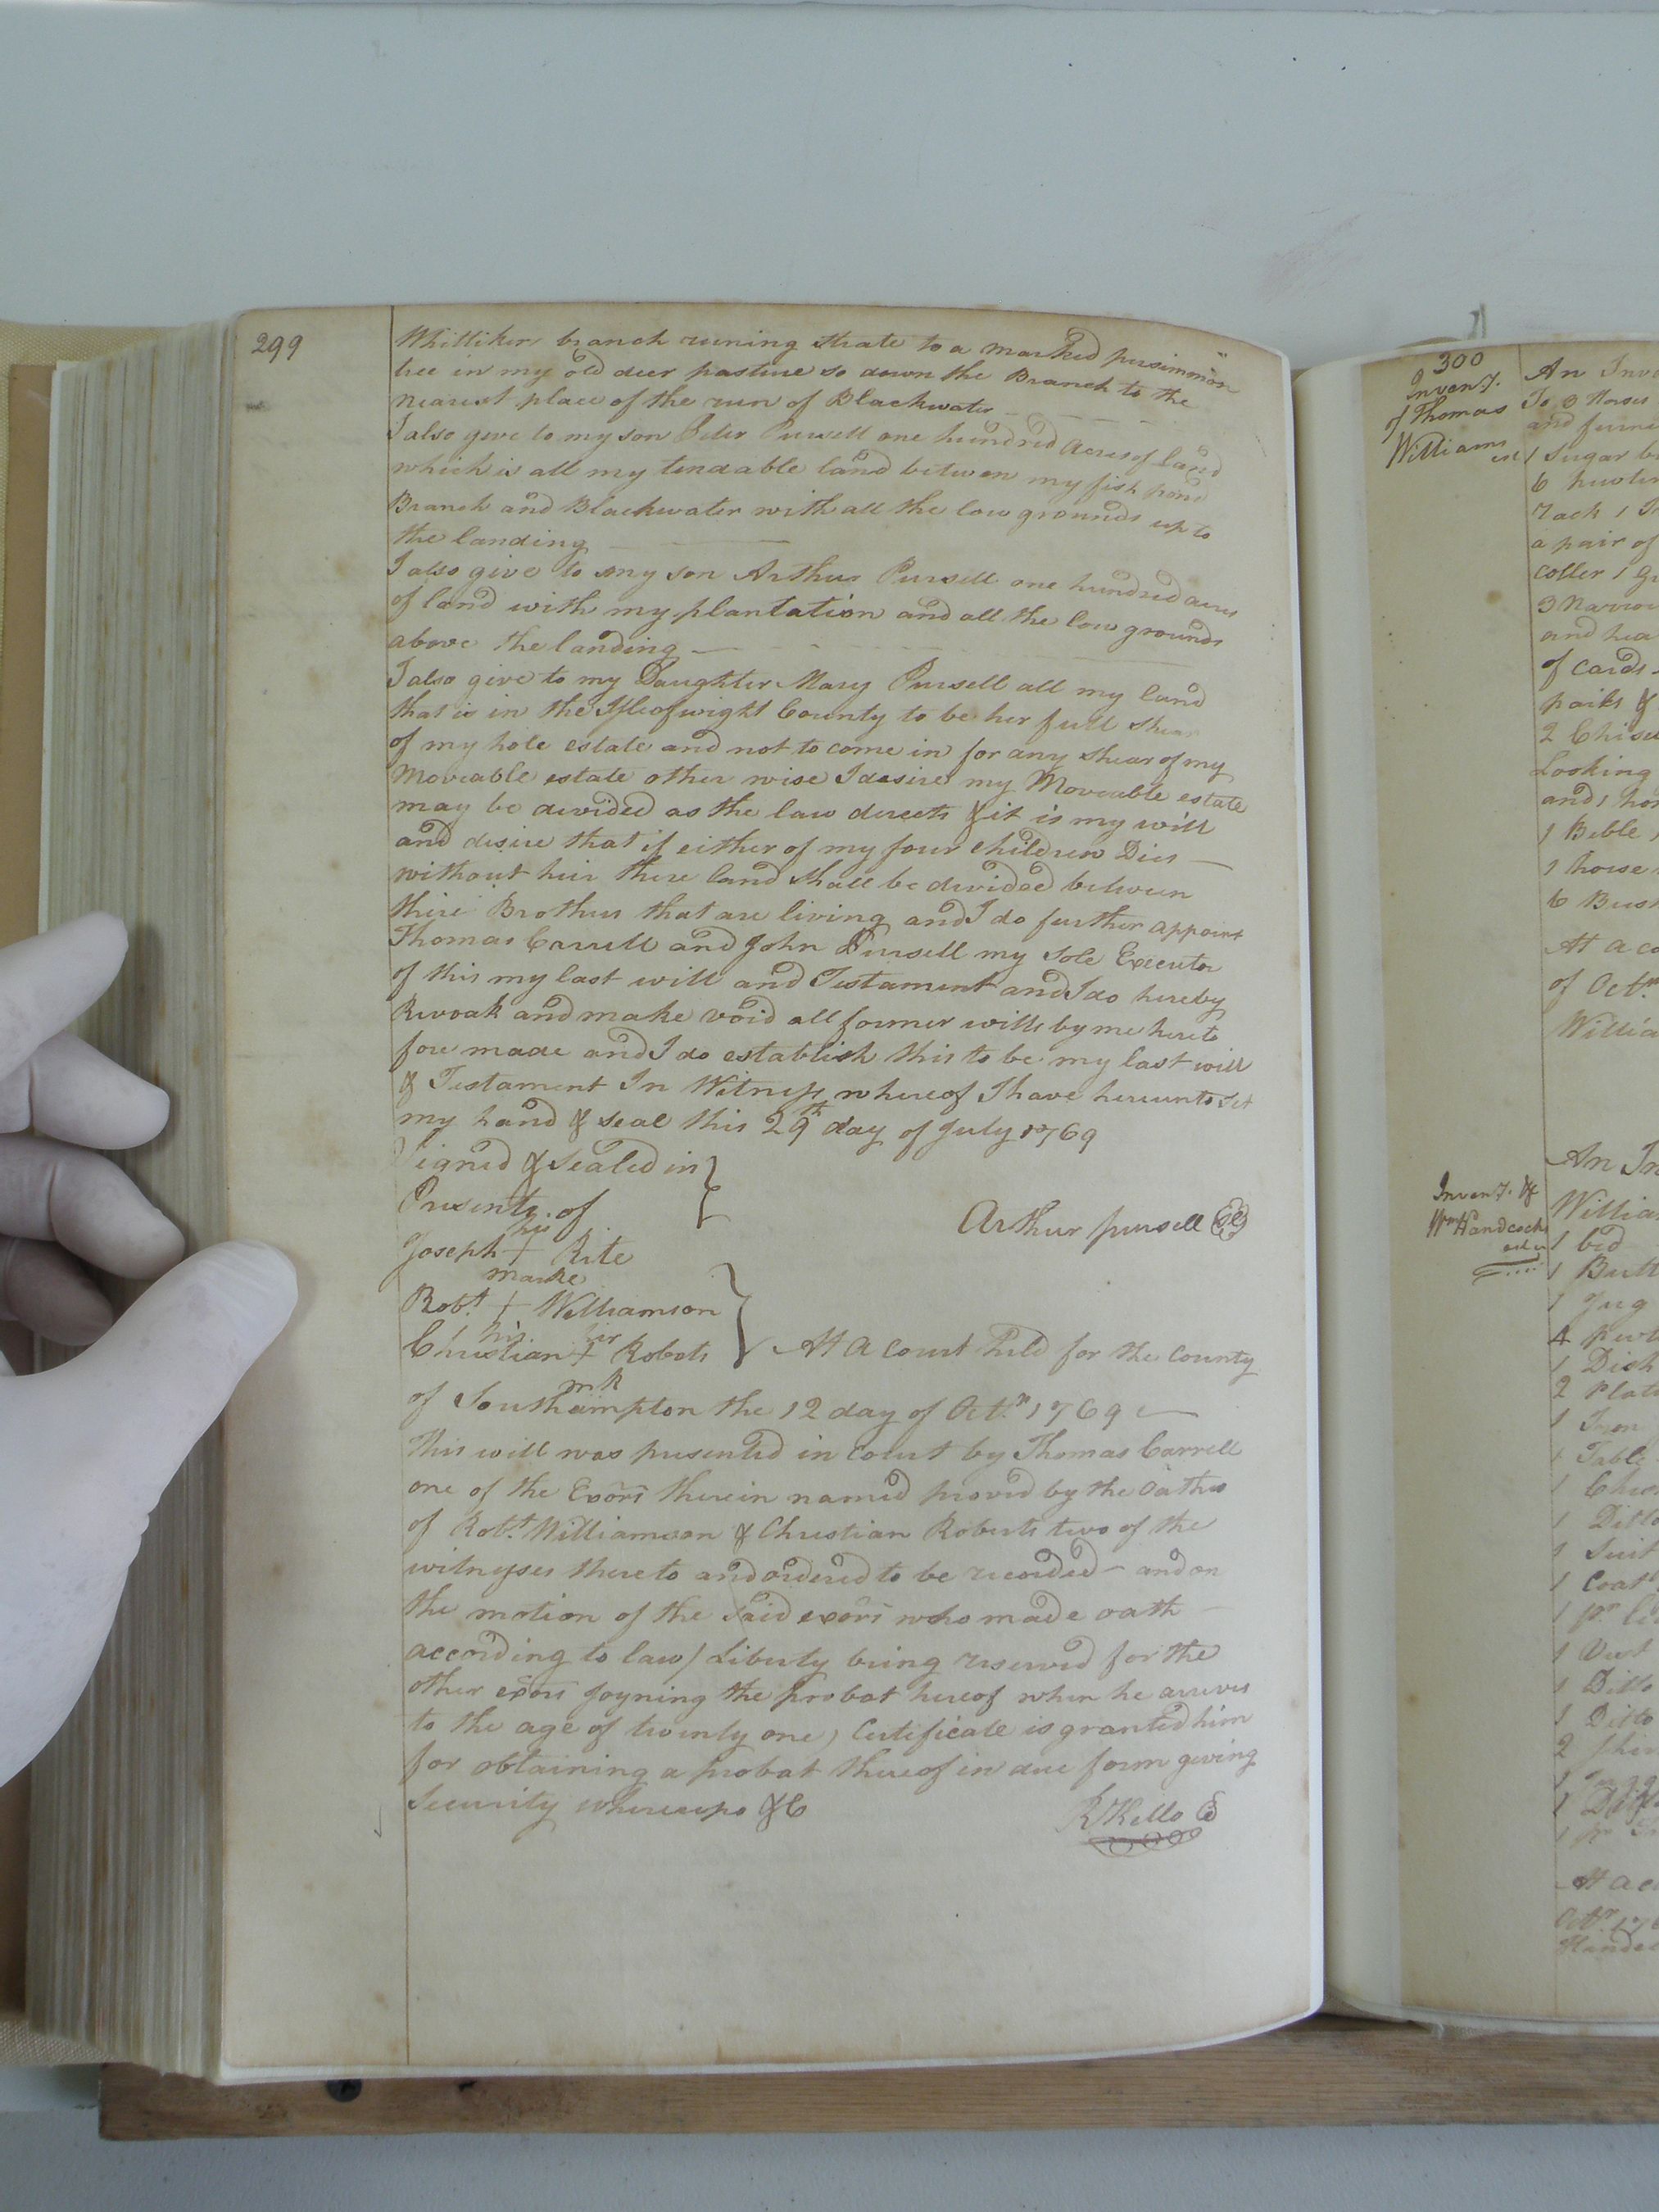 299
Whitliker branch runing strate to a marked pursimmon
tree in my old deer pasture so down the Branch to the
nearest place of the run of Blackwater
I also give to my son Peter Pursell one hundred acres of land
which is all my tendable land between my fish pond
Branch and Blackwater with all the low grounds up to
the landing
I also give to my son Arthur Pursell one hundred acres
of land with my plantation and all the low grounds
above the landing
I also give to my Daughter Mary Pursell all my land
that is in the Isleofwight County to be her full shear
of my hole estate and not to come in for any shear of my
Moveable estate other wise I desire my Moveable estate
may be devided as the law directs & it is my will
and desire that if either of my four children Dies
without heir there land shall be devided between
there Brothers that are living and I do further appoint
Thomas Carrell and John Pursell my Sole Executor
of this my last will and Testament and I do hereby
Revoak and make void all former wills by me hereto
fore made and I do establish this to be my last will
& Testament In Witness whereof I have hereunto set
my hand & seal this 29th day of July 1769
Signed & Sealed in
Presents of
Arthur pursell
his
Joseph + Rite
marke
Robt + Williamson
his her
Christian + Robots
mk
At a Court held for the County
of Southampton the 12 day of Octr 1769
This will was presented in Court by Thomas Carrell
one of the Exors therein named proved by the Oaths
of Robt Williamson & Christian Roberts two of the
witnesses thereto and ordered to be recorded - and on
the motion of the said exors who made oath
according to law / Liberty being reserved for the
other exors joyning the probat hereof when he arrives
to the age of twenty one ) Certificate is granted him
for obtaining a probat thereof in due form giving
Security whereupo &C
R Kello
300
Inventy.
of Thomas
Williams
est
An Inve
To 3 Horses
and furni
1 Sugar b
6
rack 1
a pair of
coller 1
3 Narrow
and hea
of cards
pails &
2 Chisel
Looking
and 1 hor
1 Bible
1 horse
6 Bush
At a co
of Octr
Willia
Inventy. of
Wm Handcocks
An In
Willia
1 bed
1 Butt
1 Jug
4 pewt
1 Dish
2 Plat
1 Iron
1 Table
1
1 Ditto
1 Suit
1 Coat
1 pr
1 Vest
1 Ditto
1 Ditto
2
1
At a co
Octr 176
Handco